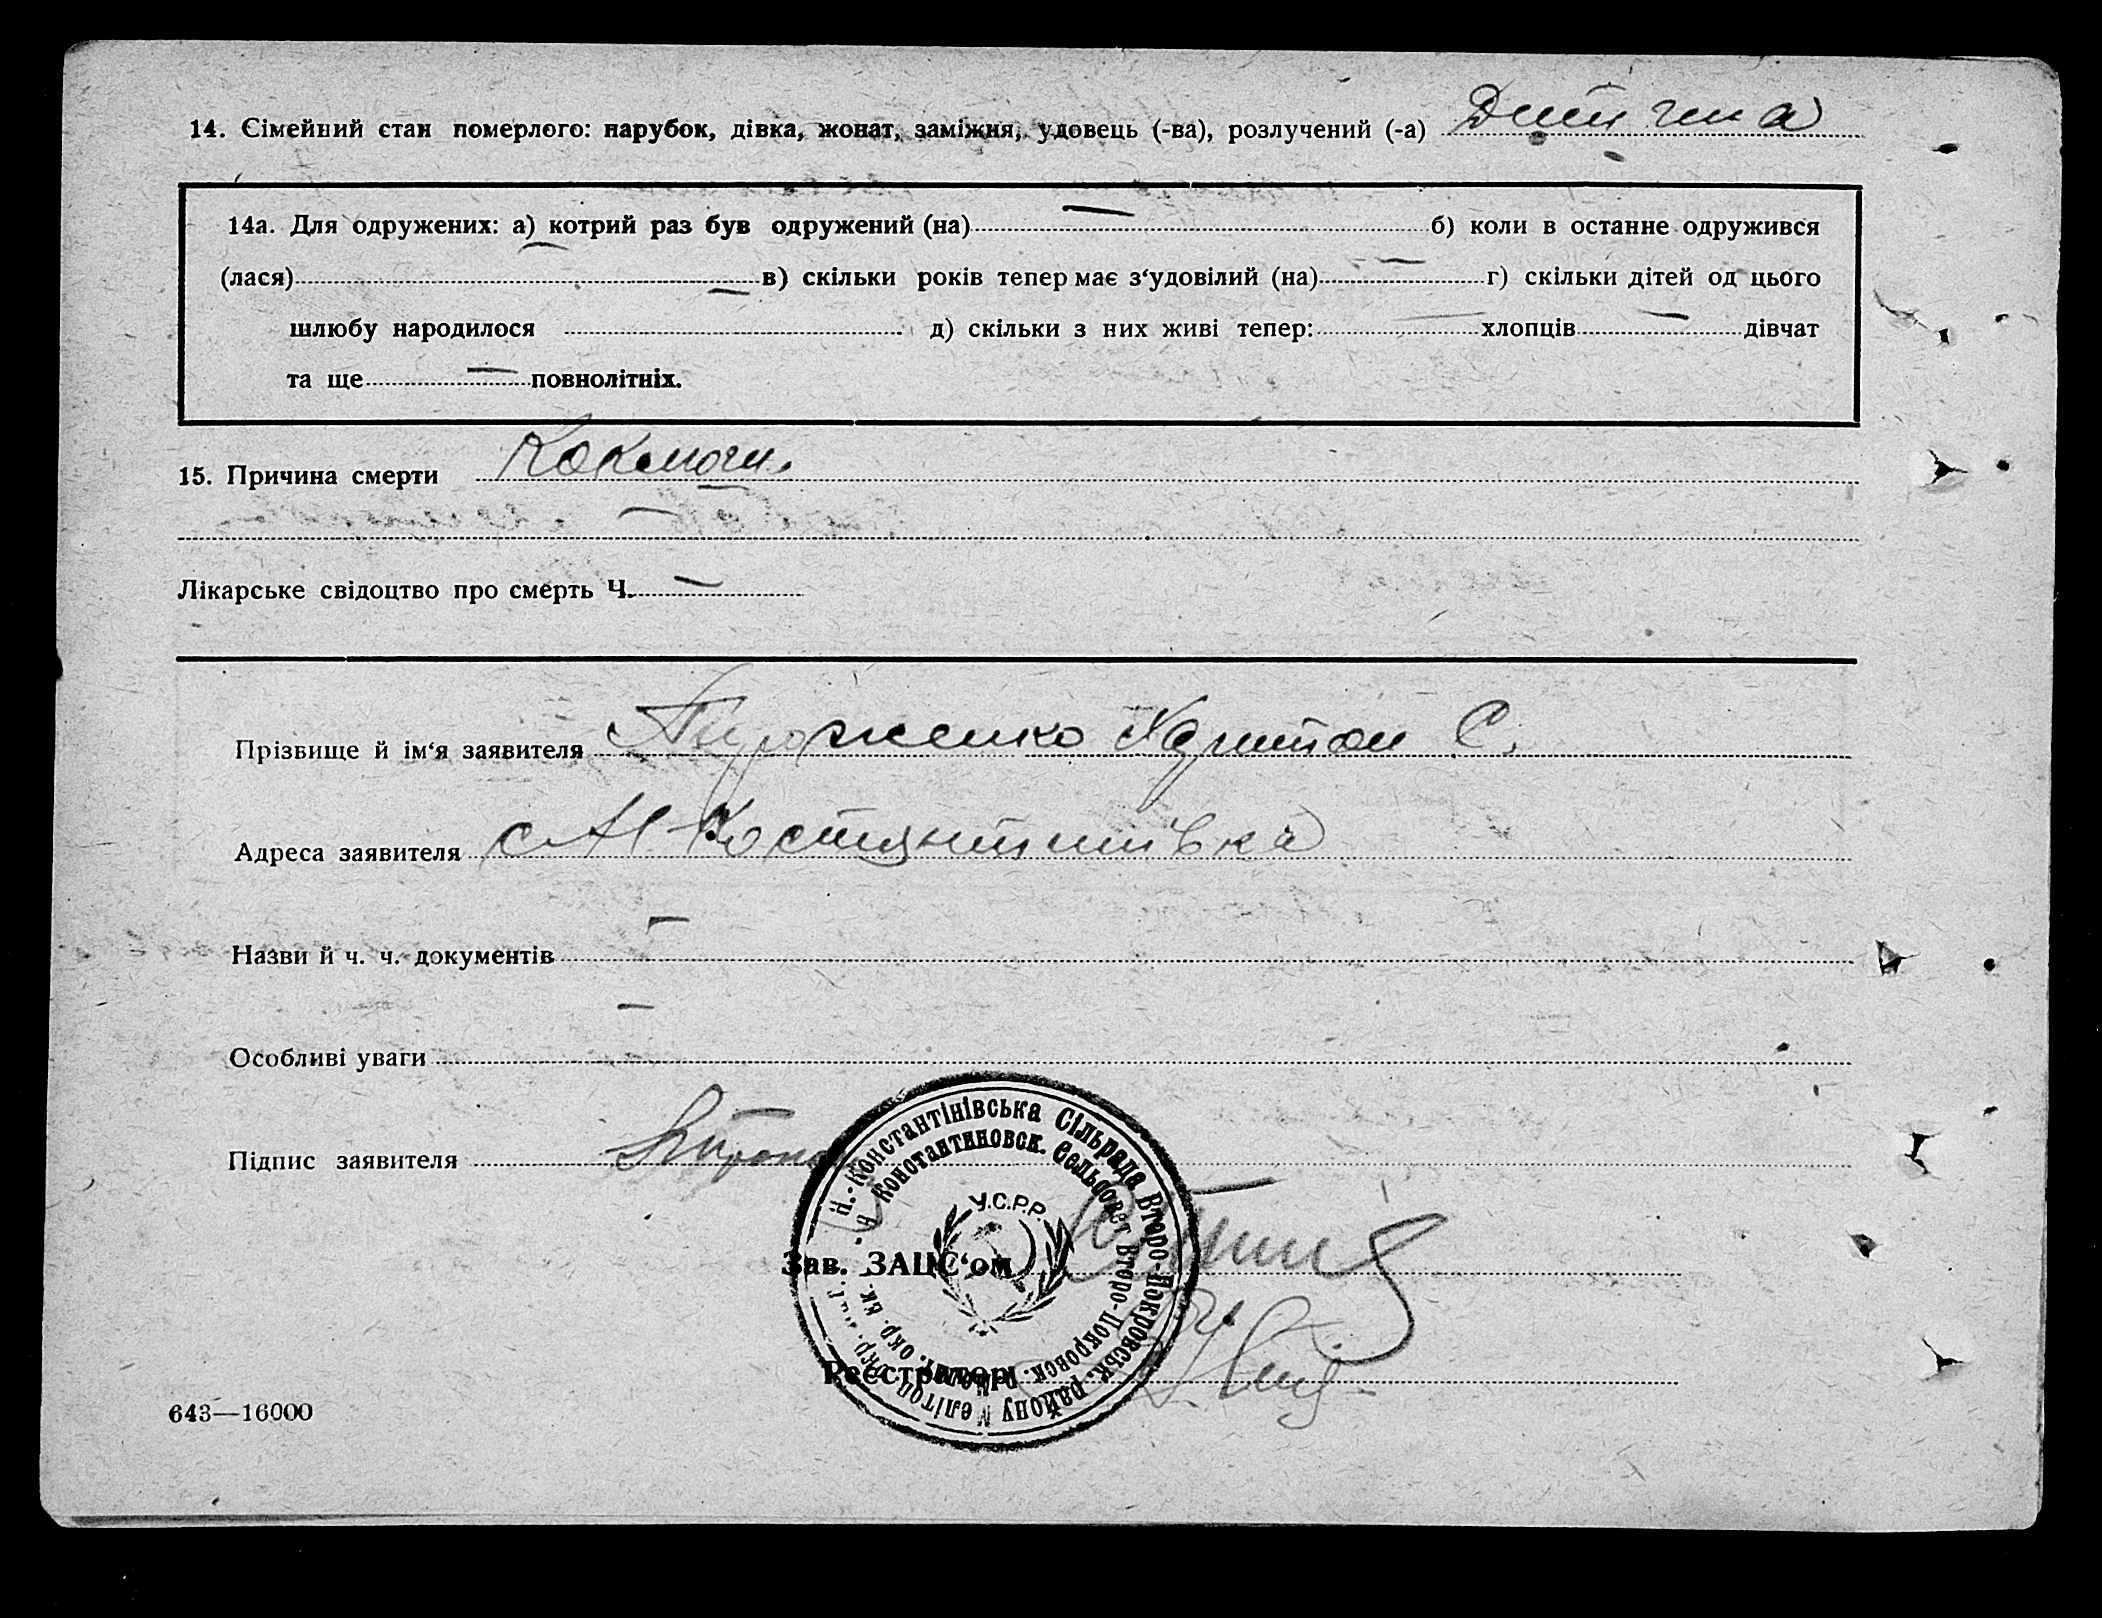 14. Сімейний стан померлого: парубок, дівка, жонат, заміжня, удовець (-ва), розлучений (-а) Дитичина
14а. Для одружених: а) котрий раз був одружений (на) — б) коли в останнє одружився
(лася) — в) скільки років тепер має з‘удовілий (на) — г) скільки дітей од цього
шлюбу народилося — д) скільки з них живі тепер: — хлопців — дівчат
та ще — повнолітніх.
15. Причина смерти Коклюш
—
Лікарське свідоцтво про смерть Ч. —
Прізвище й ім‘я заявителя Харитон С.
Адреса заявителя с Н Костянтинівка
Назви й ч. ч. документів —
Особливі уваги —
Підпис заявителя
Н.-Константінівська Сільрада Второ-Покровськ. району Мелітоп. Окр.
Н. Константиновск. Сельсовет Второ-Покровск.
У.С.Р.Р.
Зав. ЗАЦС‘ом
Реєстратор
643—16000